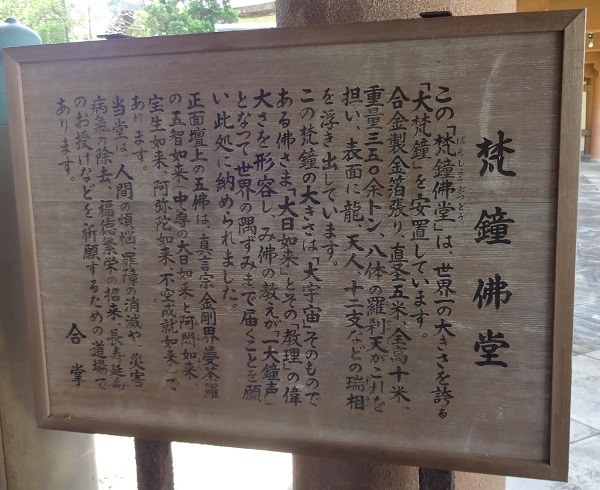 梵鐘佛堂
この「梵鐘佛堂」は、世界一の大きさを誇る
ぼんしょうぶつどう
「大梵鐘」を安置しています。
合金製金箔張り、直径五米、全高十米、
重量三五〇余トン、八体の羅刹天がこれを
担い、表面に龍、天人、十二支などの瑞相
を浮き出しています。
この梵鐘の大きさは「大宇宙」そのもので
ある佛さま「大日如来」とその「教理」の偉
大さを形容し、み佛の教えが「一大鐘声」
となって世界の隅ずみまで届くことを願
い此処に納められました。
正面壇上の五佛は、真言宗・金剛界曼荼羅
の五智如来（中尊の大日如来と阿閦如来、
宝生如来、阿弥陀如来、不空成就如来）で、
あります。
当堂は、人間の煩悩、罪障の消滅や、災害、
病氣の除去、福徳繁栄の招来、長寿延命
のお授けなどを祈願するための道場で
あります。
合掌